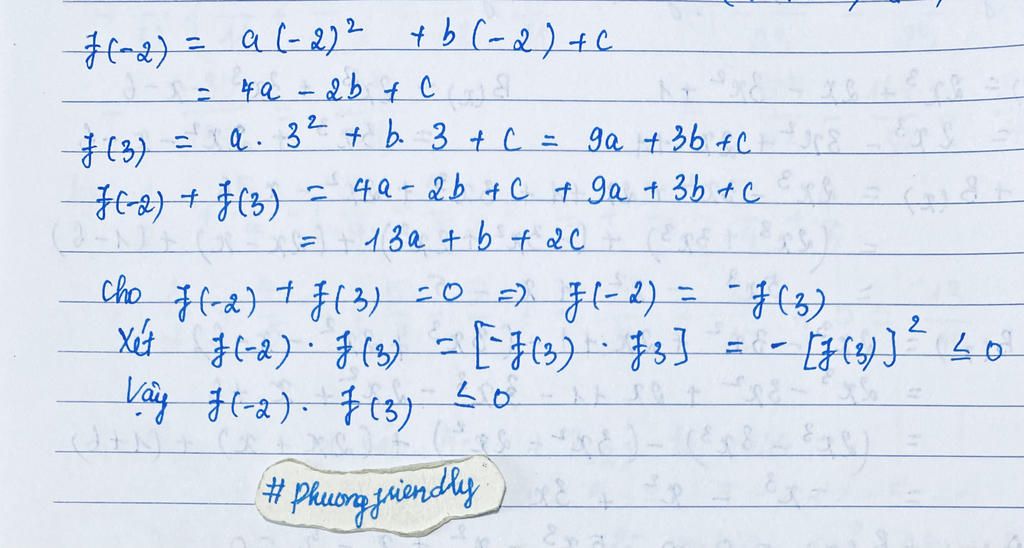 f(-2) = a(-2)² + b(-2) + c
= 4a - 2b + c
f(3) = a. 3² + b. 3 + c = 9a + 3b + c
f(-2) + f(3) = 4a - 2b + c + 9a + 3b + c
= 13a + b + 2c
Cho f(-2) + f(3) = 0 => f(-2) = -f(3)
Xét f(-2) . f(3) = [-f(3) . f3] = - [f(3)]² ≤ 0
Vậy f(-2) . f(3) ≤ 0
# Phuongfriendly